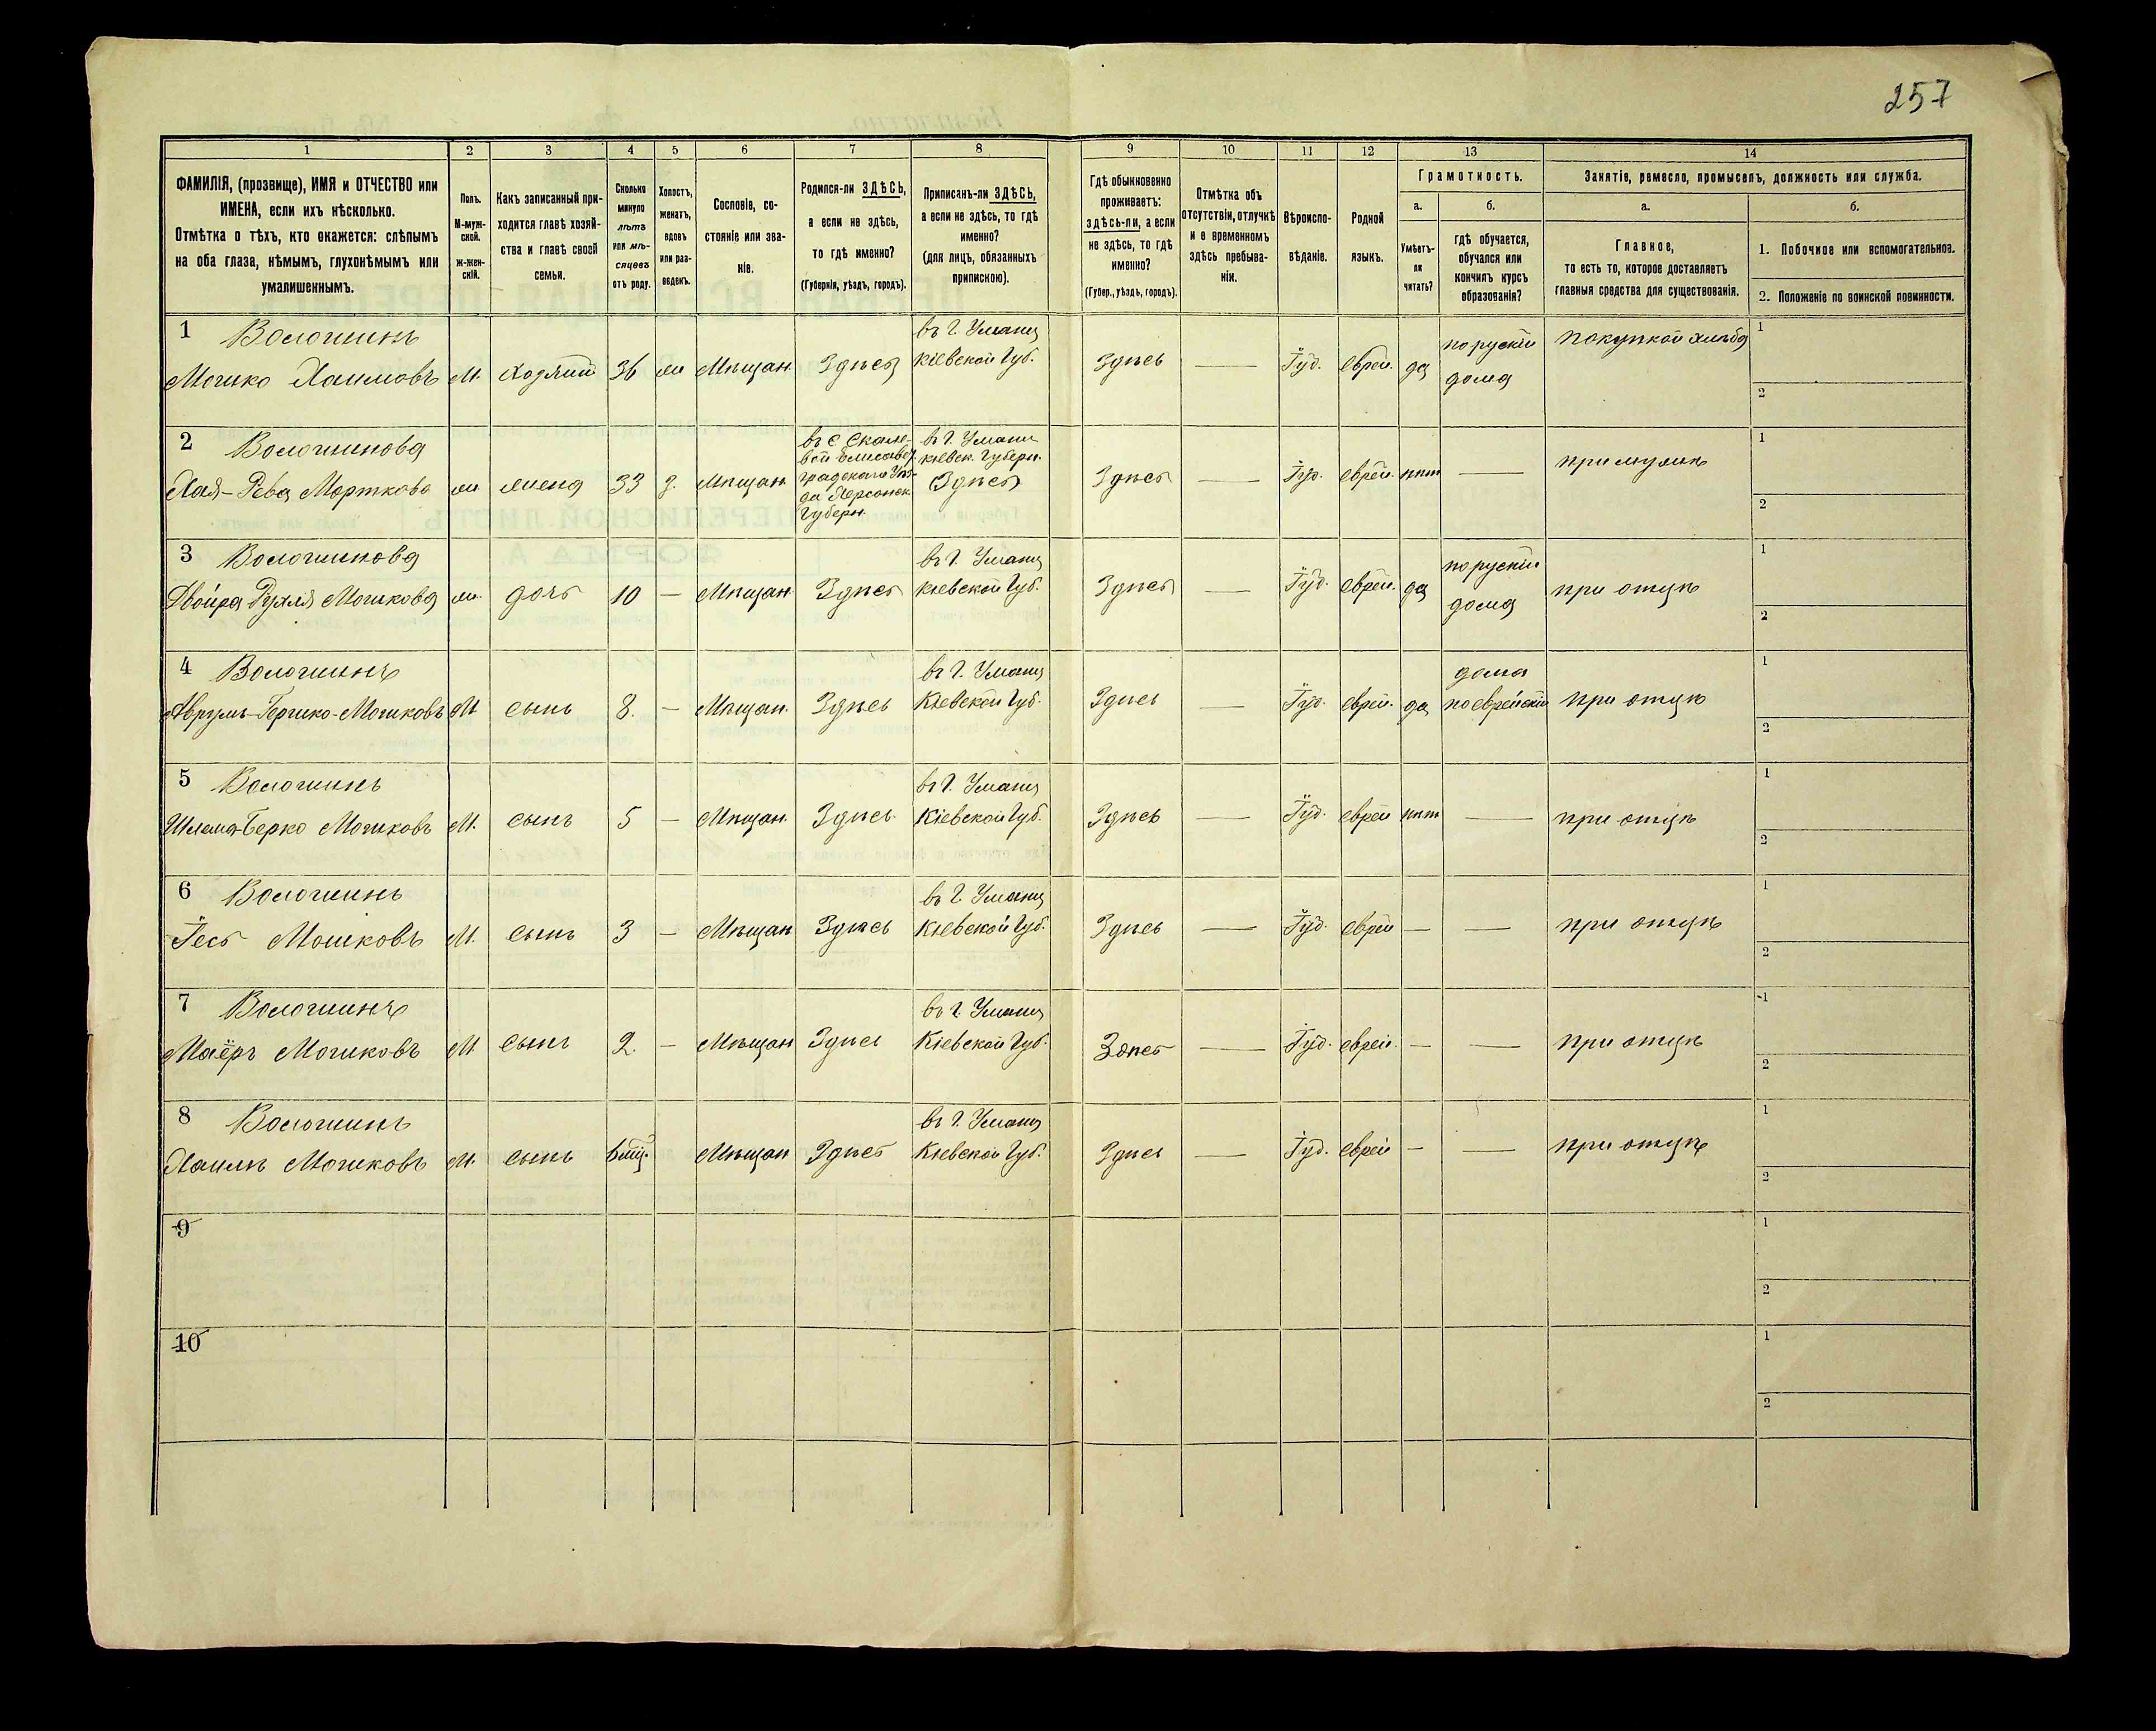 257
1 2 3 4 5 6 7 8 9 10 11 12 13 14
ФАМИЛІЯ, (прозвище), ИМЯ и ОТЧЕСТВО или
ИМЕНА, если ихъ нѣсколько.
Отмѣтка о тѣхъ, кто окажется: слѣпымъ
на оба глаза, нѣмымъ, глухонѣмымъ или
умалишеннымъ.
Полъ.
М-муж-
ской.
ж-жен-
скій.
Какъ записанный при-
ходится главѣ хозяй-
ства и главѣ своей
семьи.
Сколько
минуло
лѣтъ
или мѣ-
сяцевъ
отъ роду.
Холостъ,
женатъ,
вдовъ
или раз-
веденъ.
Сословіе, со-
стояніе или зва-
ніе.
Родился-ли ЗДѢСЬ,
а если не здѣсь,
то гдѣ именно?
(Губернія, уѣздъ, городъ).
Приписанъ-ли ЗДѢСЬ,
а если не здѣсь, то гдѣ
именно?
(для лицъ, обязанныхъ
припискою).
Гдѣ обыкновенно
проживаетъ:
здѣсь-ли, а если
не здѣсь, то гдѣ
именно?
(Губер., уѣздъ, городъ).
Отмѣтка объ
отсутствіи, отлучкѣ
и о временномъ
здѣсь пребыва-
ніи.
Вѣроиспо-
вѣданіе.
Родной
языкъ.
Грамотность.
а.
Умѣетъ-
ли
читать?
б.
гдѣ обучается,
обучался или
кончилъ курсъ
образованія?
Занятіе, ремесло, промыселъ, должность или служба.
а.
Главное,
то есть то, которое доставляетъ
главныя средства для существованія.
б.
1. Побочное или вспомогательное.
2. Положеніе по воинской повинности.
1 Волошинъ
Мошко Хаимовъ М. 36 Мѣщан. Здѣсь
въ г. Умань
Кіевской Губ.
Здѣсь — Іуд. еврей. да
по рускій
дома
покупкой хлѣба
1
2
2 Волошинова
Хая-Рева Морткова жена 33 з. мѣщан
въ с Скале-
вой Елисавет
градскаго Уѣз-
да Херсонск.
Губерн.
въ г. Умани
кіевск. Губерн.
(Здѣсь)
Здѣсь — Іуд. еврей. нѣт —
при мужѣ
1
2
3 Волошинова
Двойра Рухля Мошкова дочь 10 — Мѣщан Здѣсь
въ г. Умань
кіевской Губ.
Здѣсь — Іуд. еврей. да
по рускій
дома
при отцѣ
1
2
4 Волошинъ
Аврумъ-Гершко-Мошковъ М сынъ 8. — Мѣщан. Здѣсь
въ г. Умань
Кіевской Губ.
Здѣсь — Іуд. еврей. да
дома
по еврейскій
при отцѣ
1
2
5 Волошинъ
Шлема-Берко Мошковъ М. сынъ 5 — Мѣщан. Здѣсь
въ г. Умань
Кіевской Губ.
Здѣсь — Іуд. еврей нѣт —
при отцѣ
1
2
6 Волошинъ
Іесь Мошковъ М. сынъ 3 — Мѣщан Здѣсь
въ г. Умань
Кіевской Губ.
Здѣсь — Іуд. еврей — —
при отцѣ
1
2
7 Волошинъ
Маёръ Мошковъ М сынъ 2. — Мѣщан Здѣсь
въ г. Умань
Кіевской Губ.
Здѣсь — Іуд. еврей. — —
при отцѣ
1
2
8 Волошинъ
Мошковъ М. сынъ Мѣщан Здѣсь
въ г. Умань
Кіевской Губ.
Здѣсь — Іуд. еврей — —
при отцѣ
1
2
9
1
2
10
1
2